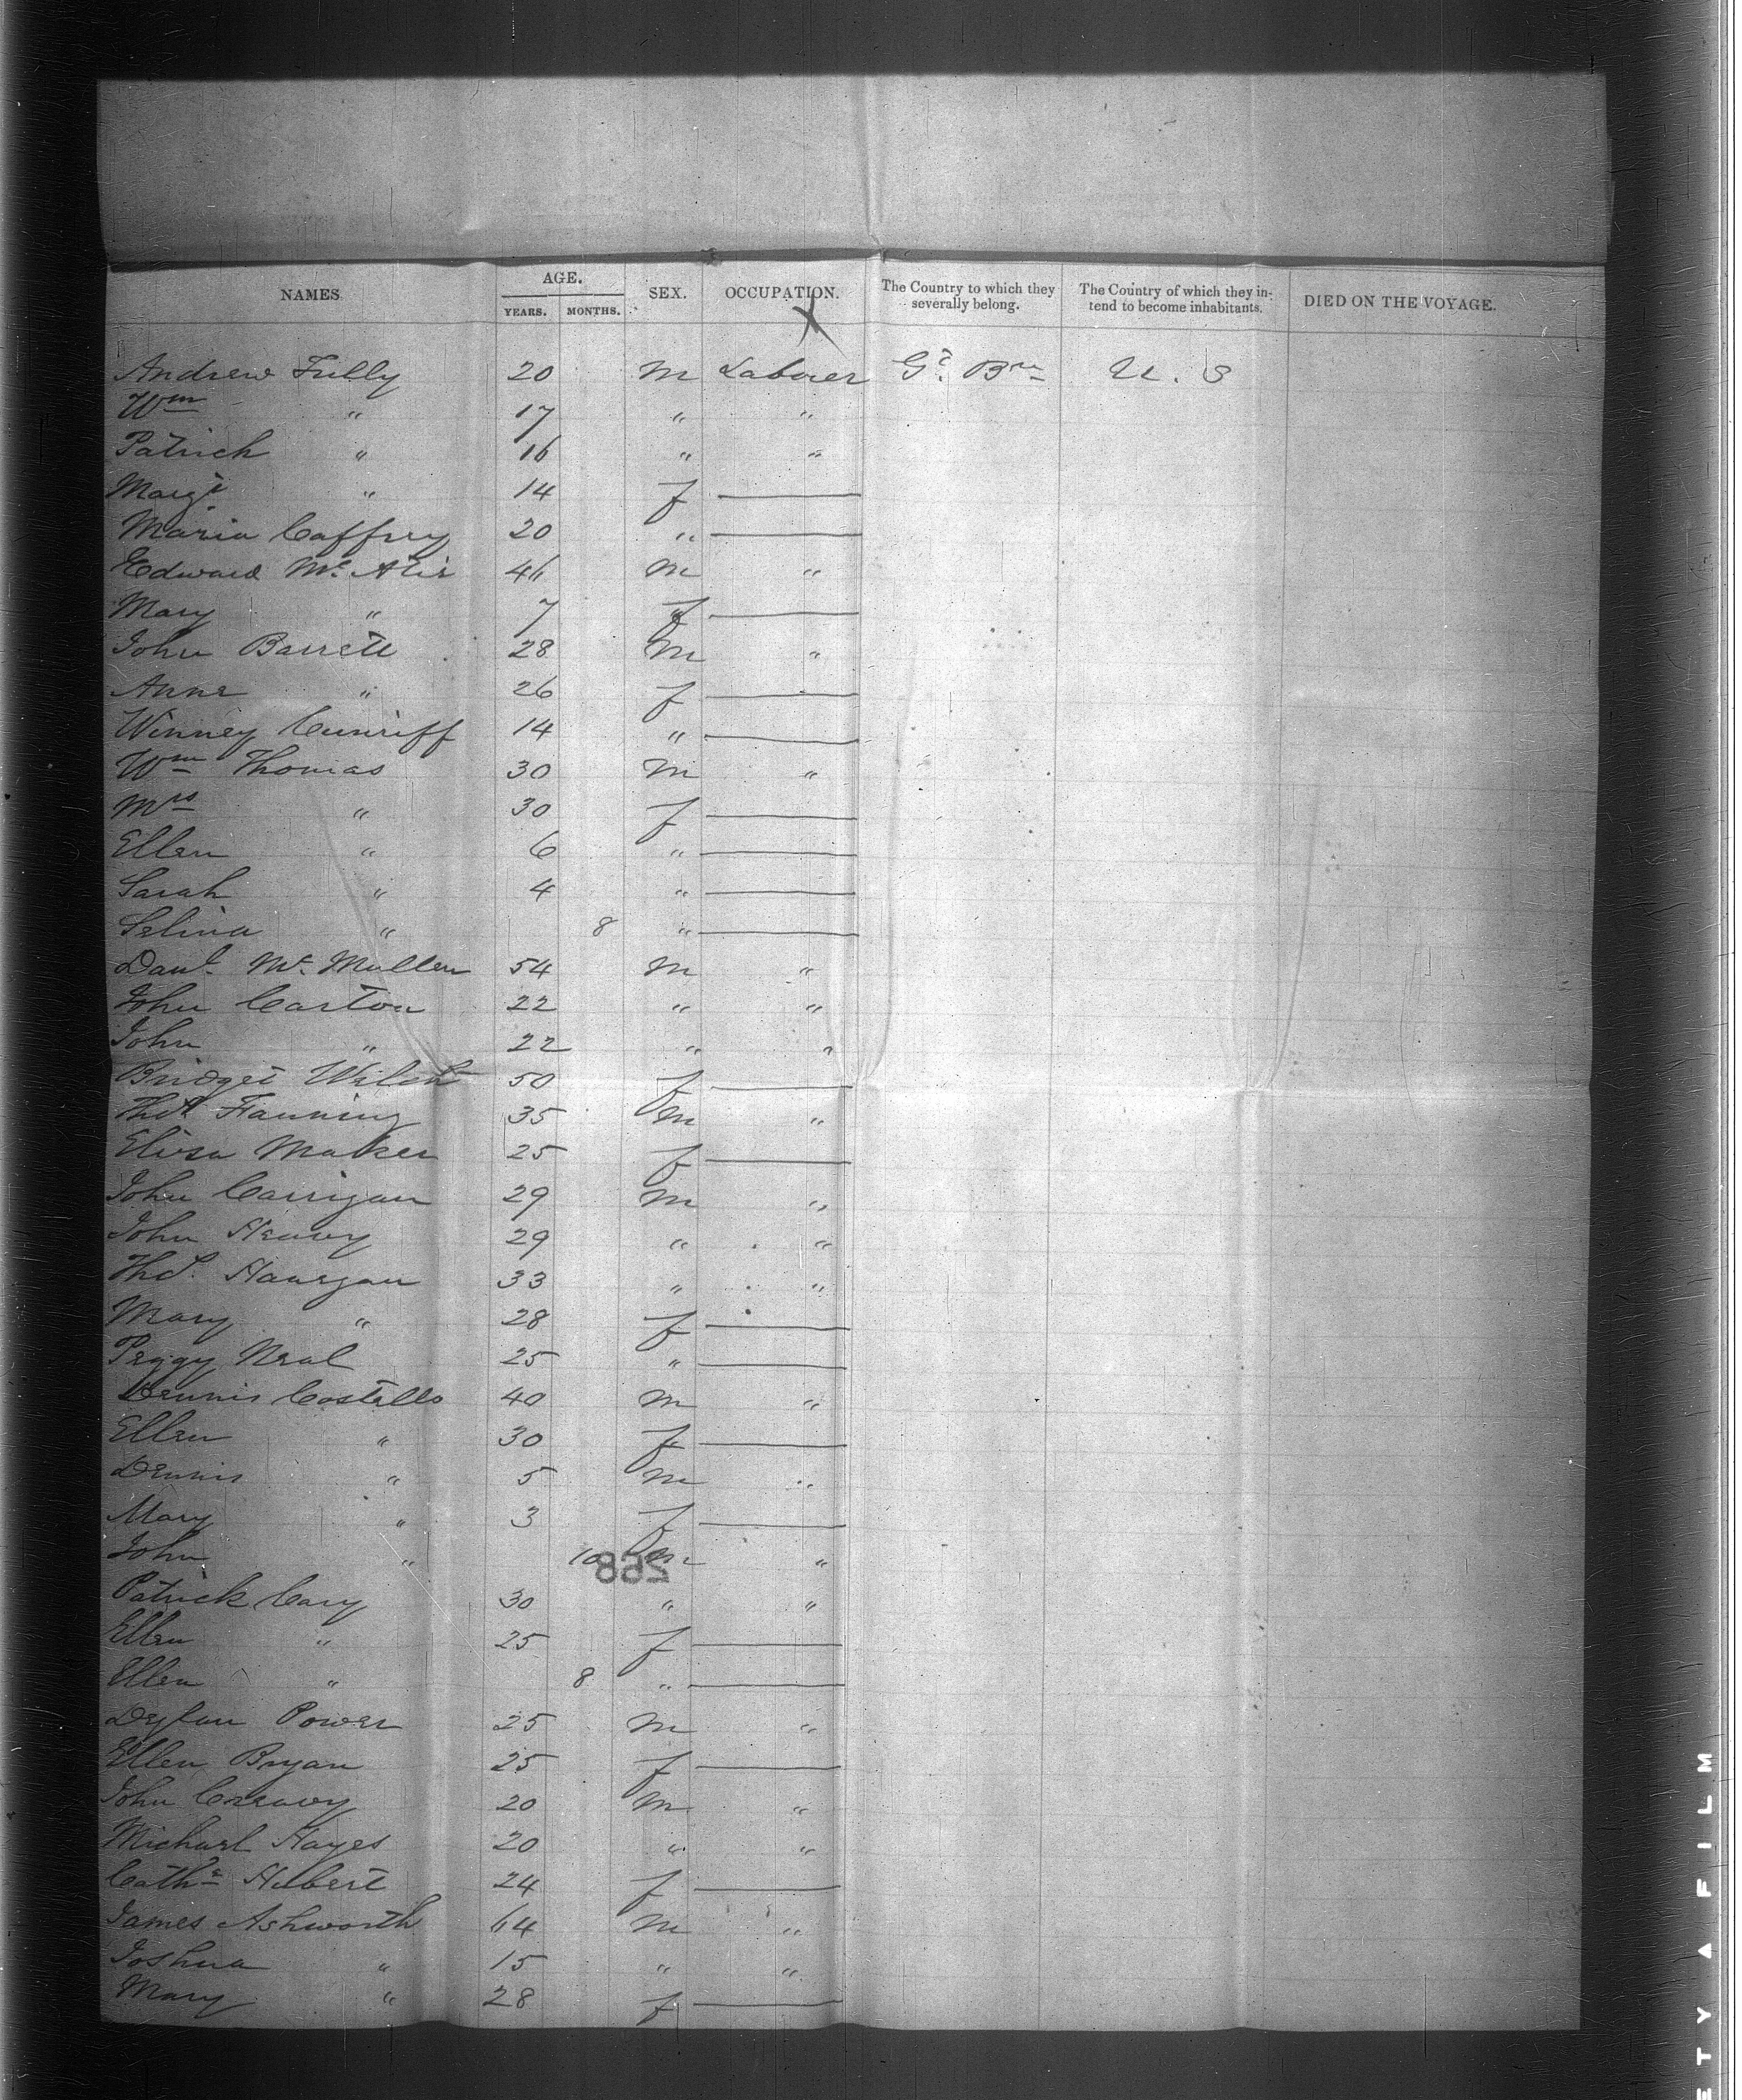 NAMES. AGE. YEARS. MONTHS. SEX. OCCUPATION. The Country to which they severally belong. The Country of which they intend to become inhabitants. DIED ON THE VOYAGE.
X
Andrew Tully 20 m Laborer Gt. Brn U. S
Wm " 17 " "
Patrick " 16 " "
Margt " 14 f
Maria Caffrey 20 "
Edward Mc. Atir 46 m "
Mary " 7 f
John Barrett 28 m "
Anne " 26 f
Winney Cunriff 14 "
Wm Thomas 30 m "
Mrs " 30 f
Ellen " 6 "
Sarah " 4 "
Selina " 8 "
Danl. Mc. Mullen 54 m "
John Carton 22 " "
John " 22 " "
Bridget Welch 50 f
Thos Fanning 35 m "
Eliza Maker 25 f
John Carrigan 29 m "
John Heavey 29 " "
Thos. Flanegan 33 " "
Mary " 28 f
Peggy Neal 25 "
Dennis Costello 40 m "
Ellen " 30 f
Dennis " 5 m "
Mary " 3 f
John " 10 m "
268
Patrick Cary 30 " "
Ellen " 25 f
Ellen " 8 "
Dylan Power 25 m "
Ellen Bryan 25 f
John Creavy 20 m "
Michael Hayes 20 " "
Cathe Hubert 24 f
James Ashworth 64 m "
Joshua " 15 " "
Mary " 28 f
ETY ▲ FILM